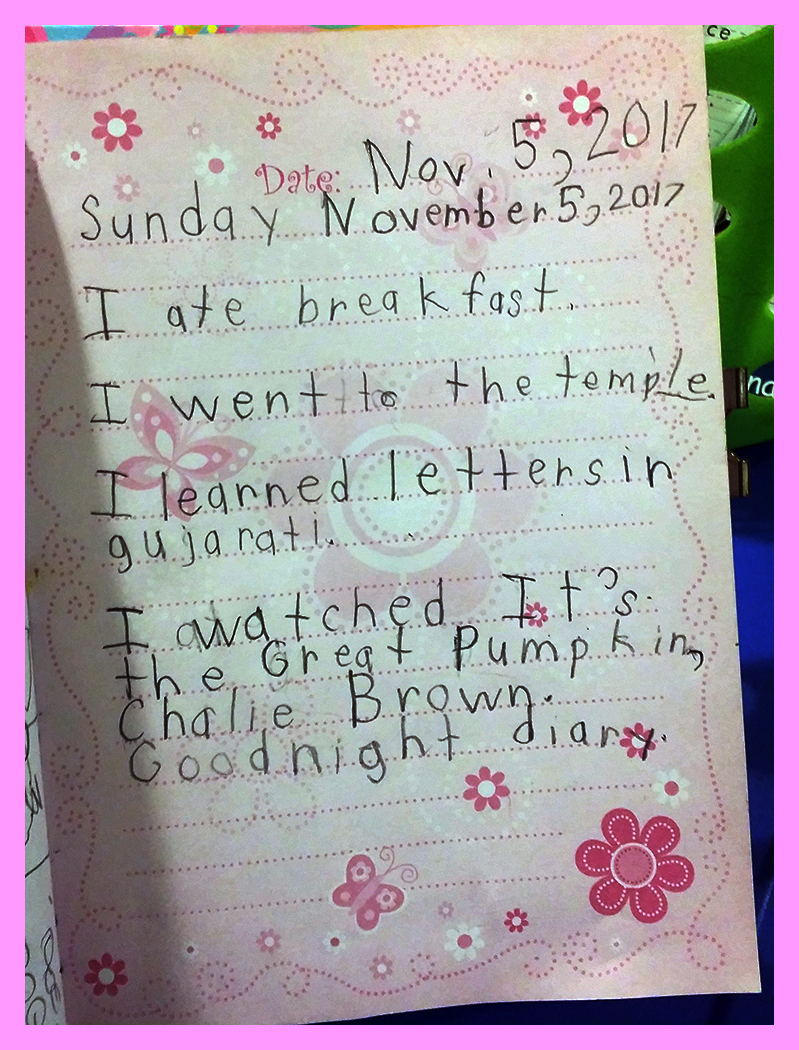 ce
Date: Nov. 5, 2017
Sunday November 5, 2017
I ate breakfast.
I went to the temple.
I learned letters in
gujarati.
I watched It's
the Great Pumpkin,
Chalie Brown.
Goodnight diary.